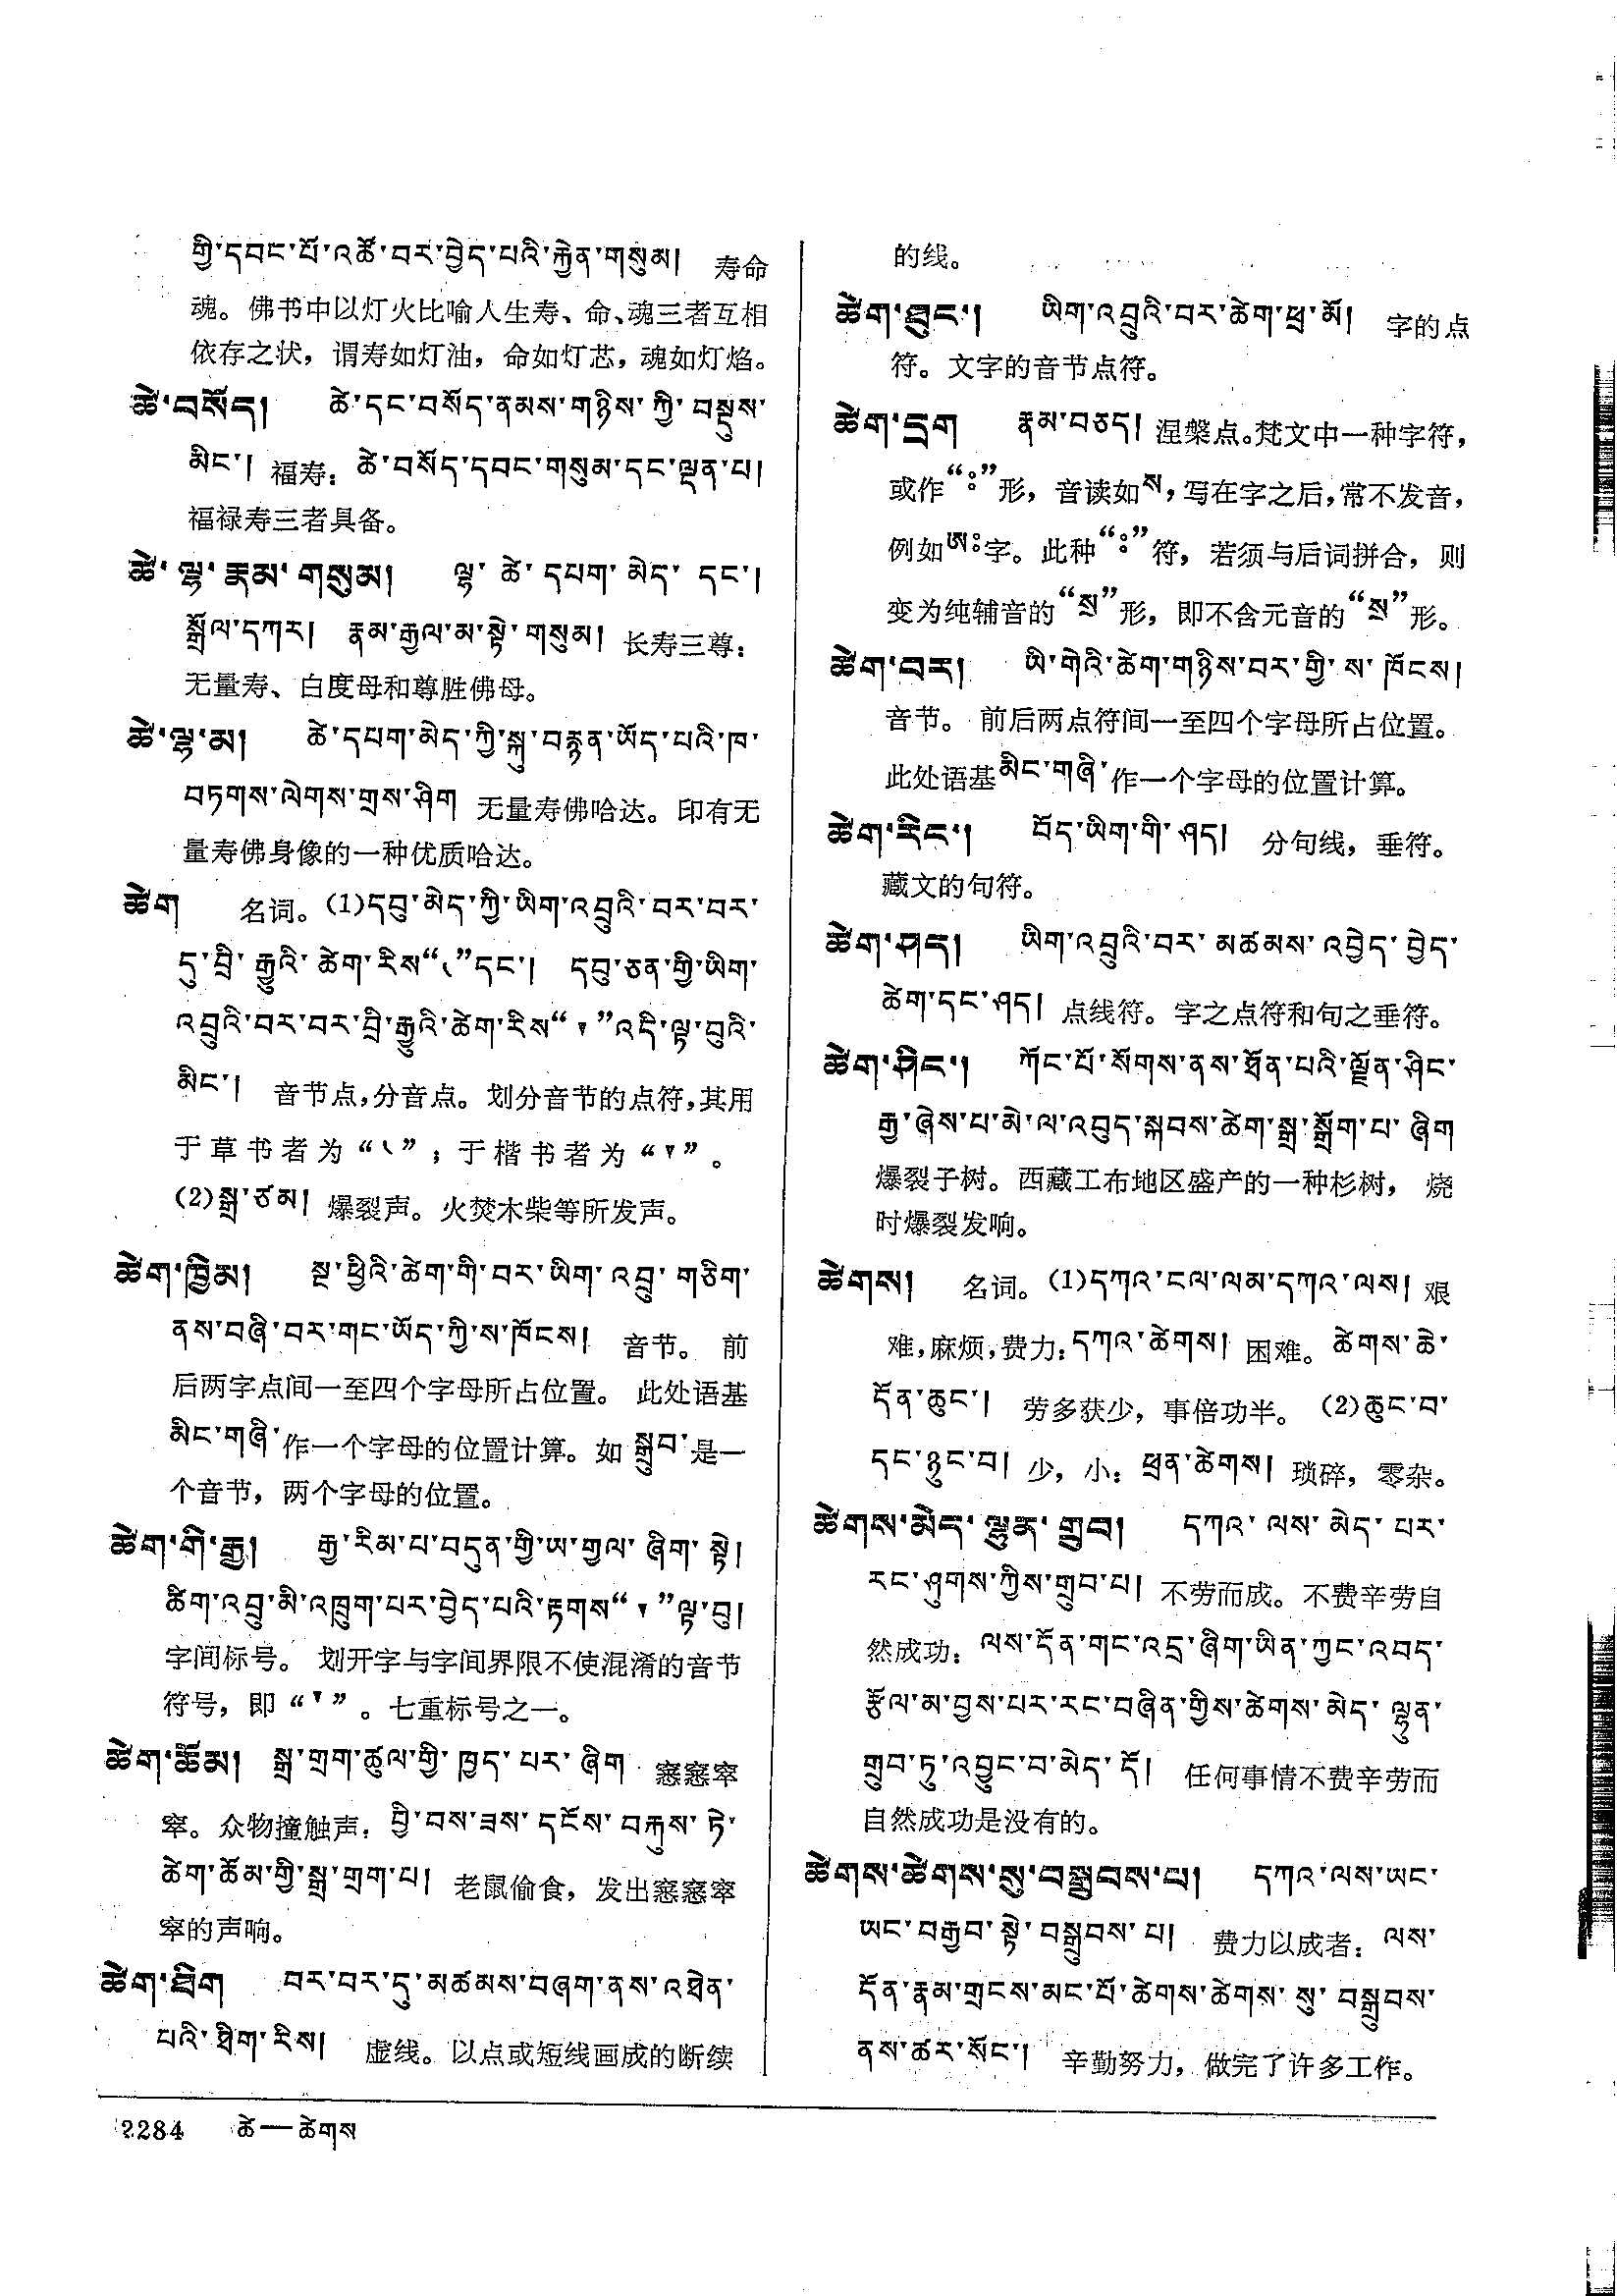 གྱི་དབང་པོ་འཚོ་བར་བྱེད་པའི་རྐྱེན་གསུམ། 寿命
魂。佛书中以灯火比喻人生寿、命、魂三者互相
依存之状，谓寿如灯油，命如灯芯，魂如灯焰。
ཚེ་བསོད། ཚེ་དང་བསོད་ནམས་གཉིས་ཀྱི་བསྡུས་
མིང་། 福寿：ཚེ་བསོད་དབང་གསུམ་དང་ལྡན་པ།
福禄寿三者具备。
ཚེ་ལྷ་རྣམ་གསུམ། ལྷ་ཚེ་དཔག་མེད་དང་།
སྒྲོལ་དཀར། རྣམ་རྒྱལ་མ་སྟེ་གསུམ། 长寿三尊：
无量寿、白度母和尊胜佛母。
ཚེ་ལྷ་མ། ཚེ་དཔག་མེད་ཀྱི་སྐུ་བརྙན་ཡོད་པའི་ཁ་
བཏགས་ལེགས་གྲས་ཤིག 无量寿佛哈达。印有无
量寿佛身像的一种优质哈达。
ཚེག 名词。(1)དབུ་མེད་ཀྱི་ཡིག་འབྲུའི་བར་བར་
དུ་བྲི་རྒྱུའི་ཚེག་རིས“﹝”དང་། དབུ་ཅན་གྱི་ཡིག་
འབྲུའི་བར་བར་བྲི་རྒྱུའི་ཚེག་རིས“▾”འདི་ལྟ་བུའི་
མིང་། 音节点，分音点。划分音节的点符，其用
于草书者为“﹝”；于楷书者为“▾”。
(2)སྒྲ་ཙམ། 爆裂声。火焚木柴等所发声。
ཚེག་ཁྱིམ། སྔ་ཕྱིའི་ཚེག་གི་བར་ཡིག་འབྲུ་གཅིག་
ནས་བཞི་བར་གང་ཡོད་ཀྱི་ས་ཁོངས། 音节。 前
后两字点间一至四个字母所占位置。 此处语基
མིང་གཞི་作一个字母的位置计算。如 སྒྲུབ་是一
个音节，两个字母的位置。
ཚེག་གི་རྒྱ། རྒྱ་རིམ་པ་བདུན་གྱི་ཨ་གྱལ་ཞིག་སྟེ།
ཚིག་འབྲུ་མི་འཁྲུག་པར་བྱེད་པའི་རྟགས“▾”ལྟ་བུ།
字间标号。 划开字与字间界限不使混淆的音节
符号，即“▾”。七重标号之一。
ཚེག་ཚོམ། སྒྲ་གྲག་ཚུལ་གྱི་ཁྱད་པར་ཞིག 窸窸窣
窣。众物撞触声：བྱི་བས་ཟས་དངོས་བརྐུས་ཏེ་
ཚེག་ཚོམ་གྱི་སྒྲ་གྲག་པ། 老鼠偷食，发出窸窸窣
窣的声响。
ཚེག་ཐིག བར་བར་དུ་མཚམས་བཞག་ནས་འཐེན་
པའི་ཐིག་རིས། 虚线。以点或短线画成的断续
的线。
ཚེག་ཐུང་། ཡིག་འབྲུའི་བར་ཚེག་ཕྲ་མོ། 字的点
符。文字的音节点符。
ཚེག་དྲག རྣམ་བཅད། 涅槃点。梵文中一种字符，
或作“ཿ”形，音读如ས，写在字之后，常不发音，
例如ཨཿ字。此种“ཿ”符，若须与后词拼合，则
变为纯辅音的“ས”形，即不含元音的“ས”形。
ཚེག་བར། ཡི་གེའི་ཚེག་གཉིས་བར་གྱི་ས་ཁོངས།
音节。 前后两点符间一至四个字母所占位置。
此处语基མིང་གཞི་作一个字母的位置计算。
ཚེག་རིང་། བོད་ཡིག་གི་ཤད། 分句线，垂符。
藏文的句符。
ཚེག་ཤད། ཡིག་འབྲུའི་བར་མཚམས་འབྱེད་བྱེད་
ཚེག་དང་ཤད། 点线符。字之点符和句之垂符。
ཚེག་ཤིང་། ཀོང་པོ་སོགས་ནས་ཐོན་པའི་ལྗོན་ཤིང་
རྒྱ་ཞེས་པ་མེ་ལ་འབུད་སྐབས་ཚེག་སྒྲ་སྒྲོག་པ་ཞིག
爆裂子树。西藏工布地区盛产的一种杉树， 烧
时爆裂发响。
ཚེགས། 名词。(1)དཀའ་ངལ་ལམ་དཀའ་ལས། 艰
难，麻烦，费力：དཀའ་ཚེགས། 困难。ཚེགས་ཆེ་
དོན་ཆུང་། 劳多获少，事倍功半。 (2)ཆུང་བ་
དང་ཉུང་བ། 少，小：ཕྲན་ཚེགས། 琐碎，零杂。
ཚེགས་མེད་ལྷུན་གྲུབ། དཀའ་ལས་མེད་པར་
རང་ཤུགས་ཀྱིས་གྲུབ་པ། 不劳而成。不费辛劳自
然成功：ལས་དོན་གང་འདྲ་ཞིག་ཡིན་ཀྱང་འབད་
རྩོལ་མ་བྱས་པར་རང་བཞིན་གྱིས་ཚེགས་མེད་ལྷུན་
གྲུབ་ཏུ་འབྱུང་བ་མེད་དོ། 任何事情不费辛劳而
自然成功是没有的。
ཚེགས་ཚེགས་སུ་བསྒྲུབས་པ། དཀའ་ལས་ཡང་
ཡང་བརྒྱབ་སྟེ་བསྒྲུབས་པ། 费力以成者：ལས་
དོན་རྣམ་གྲངས་མང་པོ་ཚེགས་ཚེགས་སུ་བསྒྲུབས་
ནས་ཚར་སོང་། 辛勤努力，做完了许多工作。
2284 ཚེ—ཚེགས